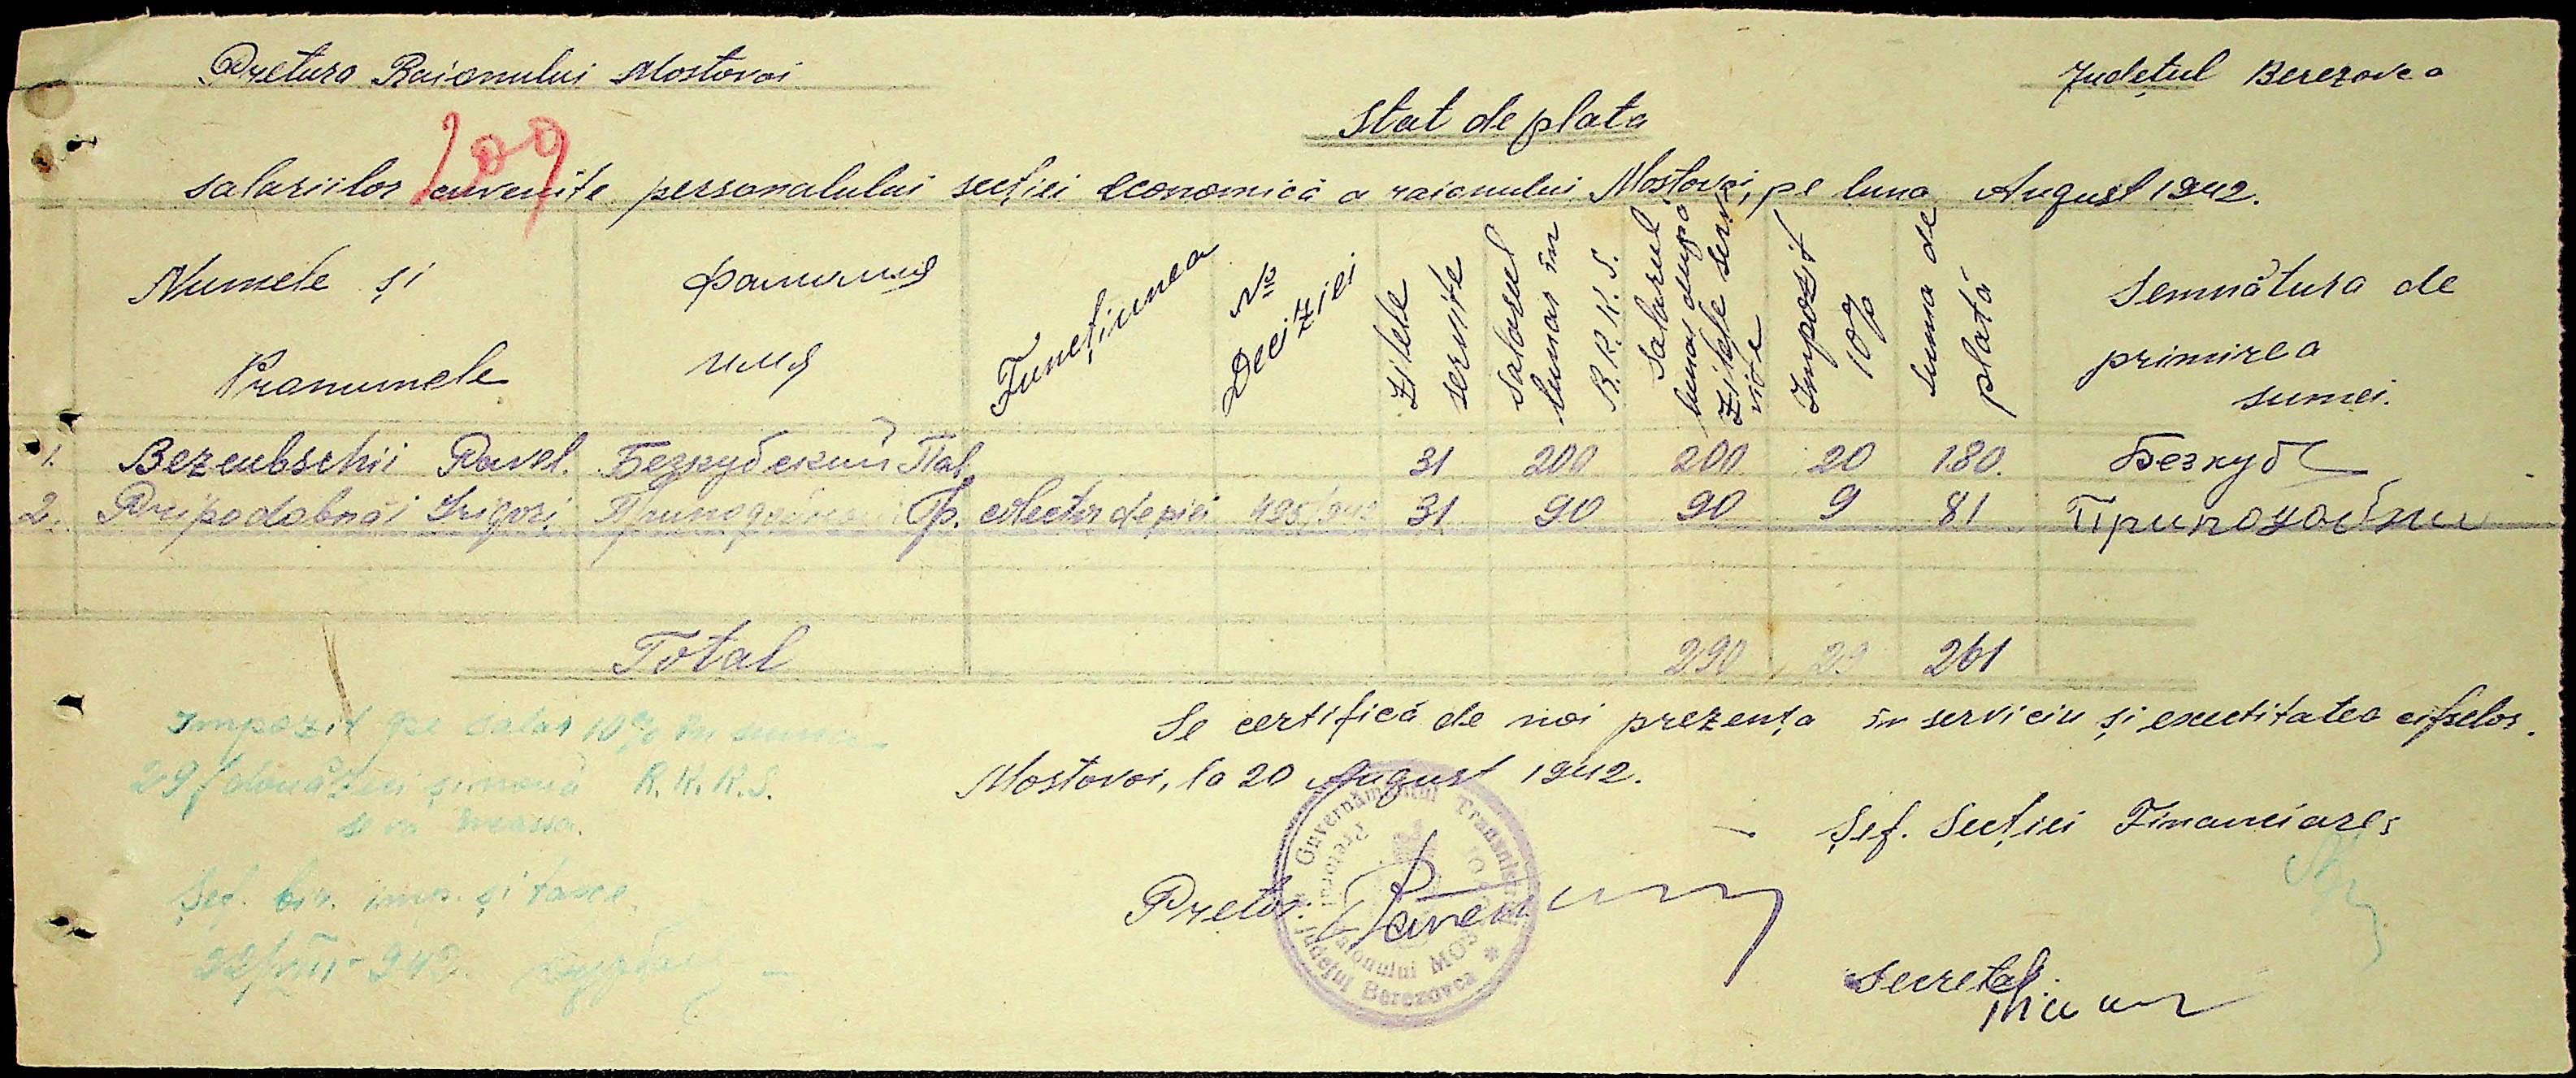 Pretura Raionului Mostovoi
Județul Berezovca
Stat de plata
209
salariilor cuvenite personalului secției economică a raionului Mostovoi, pe luna August 1942.
Numele și Pronumele
Фамилия имя
Funcțiunea
№ Deciziei
Zilele servite
Salarul lunar în R.K.K.S.
Salarul lunar după zilele servite
Impozit 10%
Suma de plată
Semnătura de primirea sumei.
1. Bezcubschii Pavel. Безкубский Пав. 31 200 200 20 180. Безкуб
2. Pripodobnâi Grigori Гр. colector de piei 495/942 31 90 90 9 81 Приподобни
Total 290 29 261
Se certifică de noi prezența în serviciu și exactitatea cifrelor.
Mostovoi, la 20 August 1942.
Impozit pe salar 10% în suma
29 (douăzeci și nouă R.K.K.S.
Șef. Secției Financiare
Pretor
Guvernământul Transnistriei
Pretoratul Raionului MOSTOVOI
Județul Berezovca
Șef. bir. imp. și taxe
22/VIII 942
Secretar